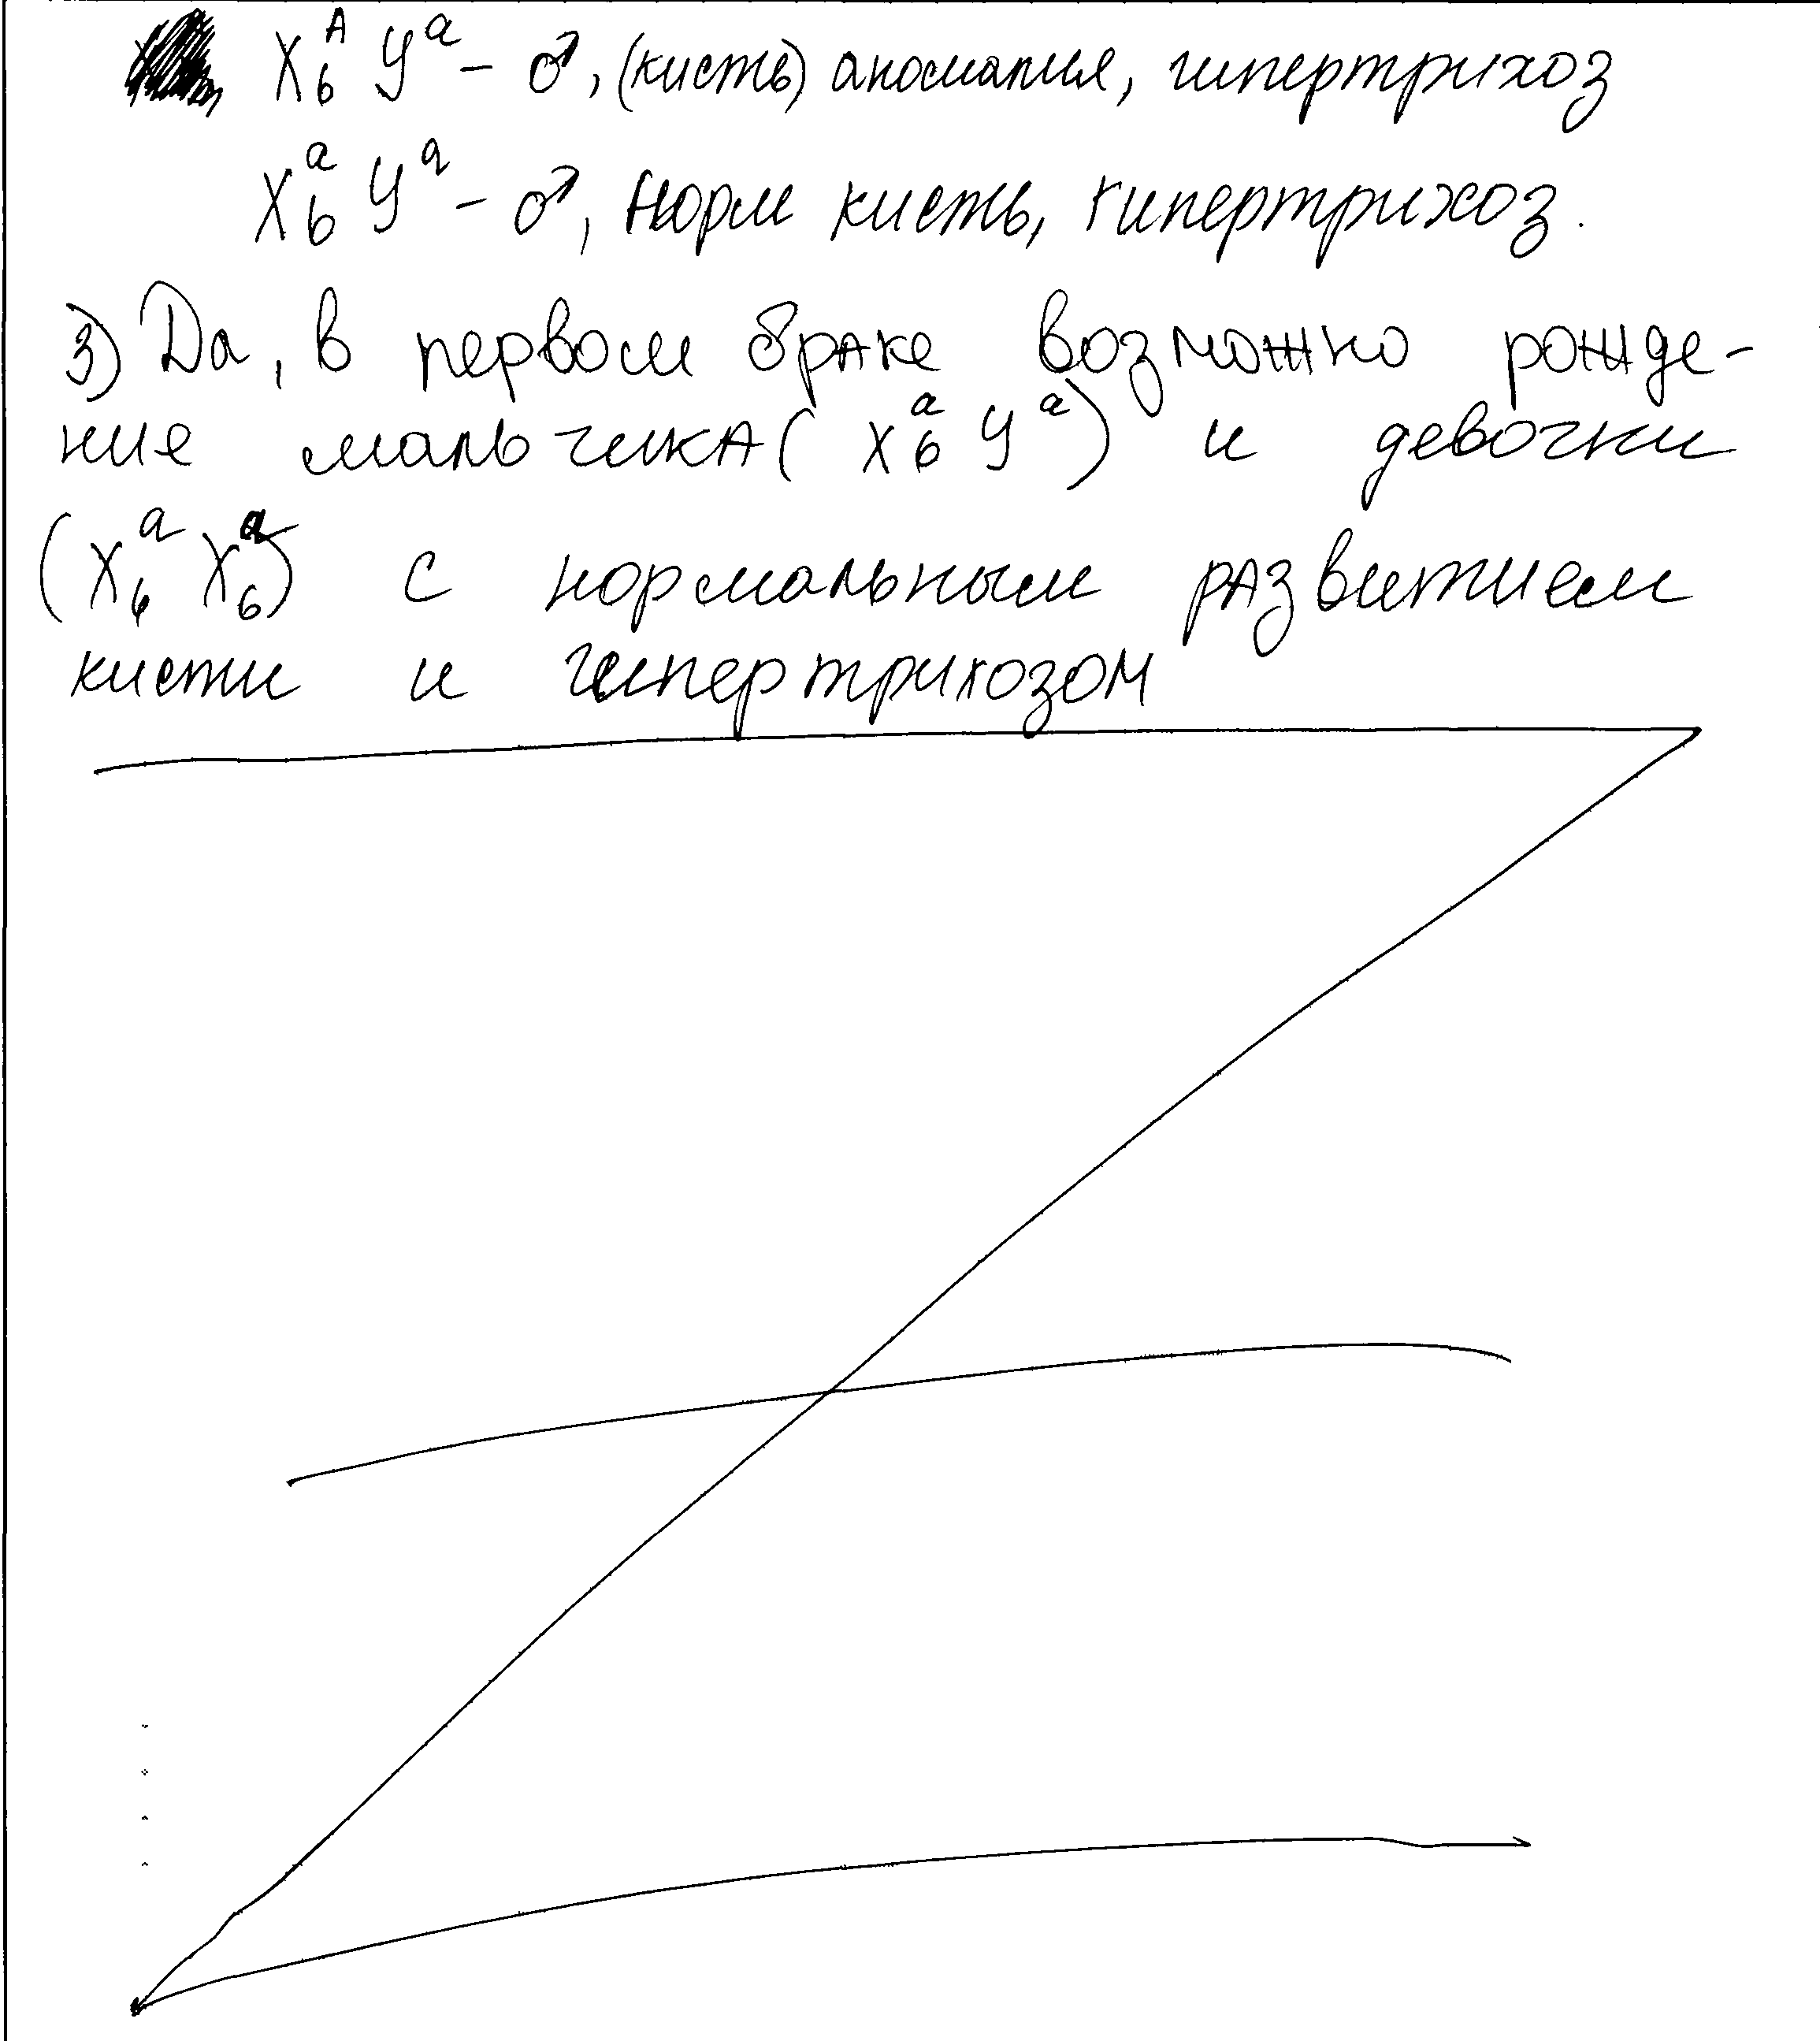 X^A_b У^a - ♂, (кисть) аномалия, гипертрихоз
X^a_b У^a - ♂, норм кисть, гипертрихоз.
3) Да, в первом браке возможно рожде-
ние мальчика (X^a_b У^a) и девочки
(X^a_b X^a_b) с нормальным развитием
кисти и гипертрихозом